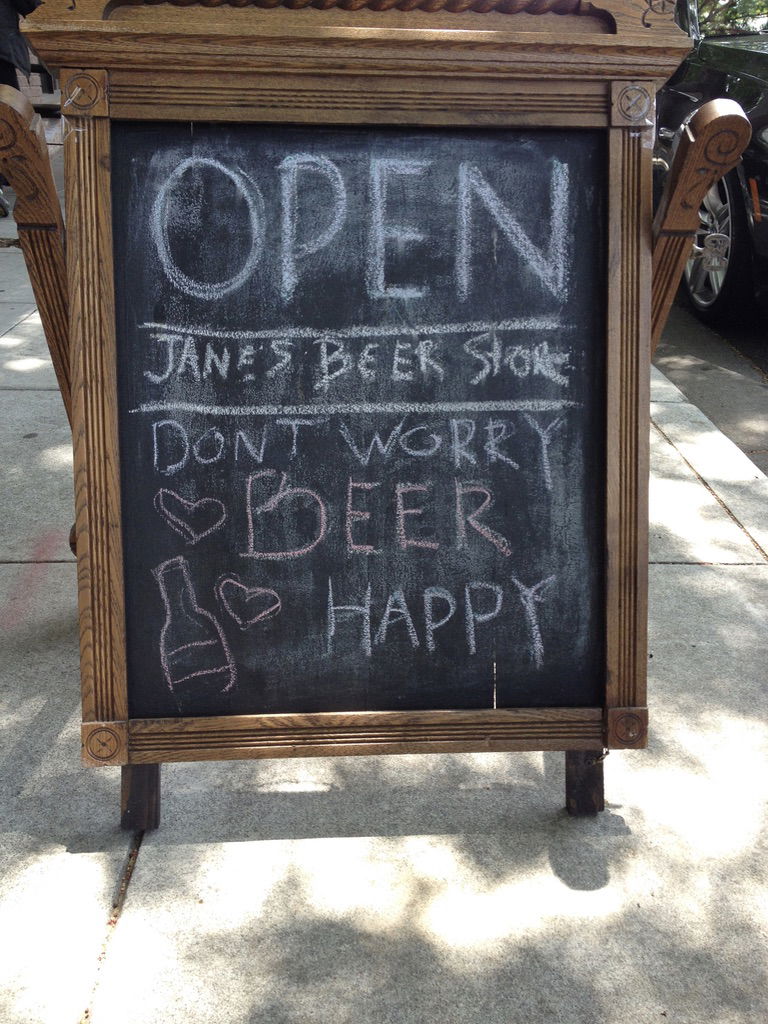 OPEN
JANE'S BEER STORE
DONT WORRY
BEER
HAPPY